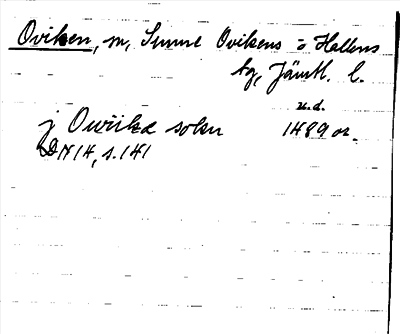 Oviken, sn, Sunne Ovikens o Hallens
tg, Jämtl. l.
u.d.
j Owiika sokn 1489 or.
DN 14, s. 141